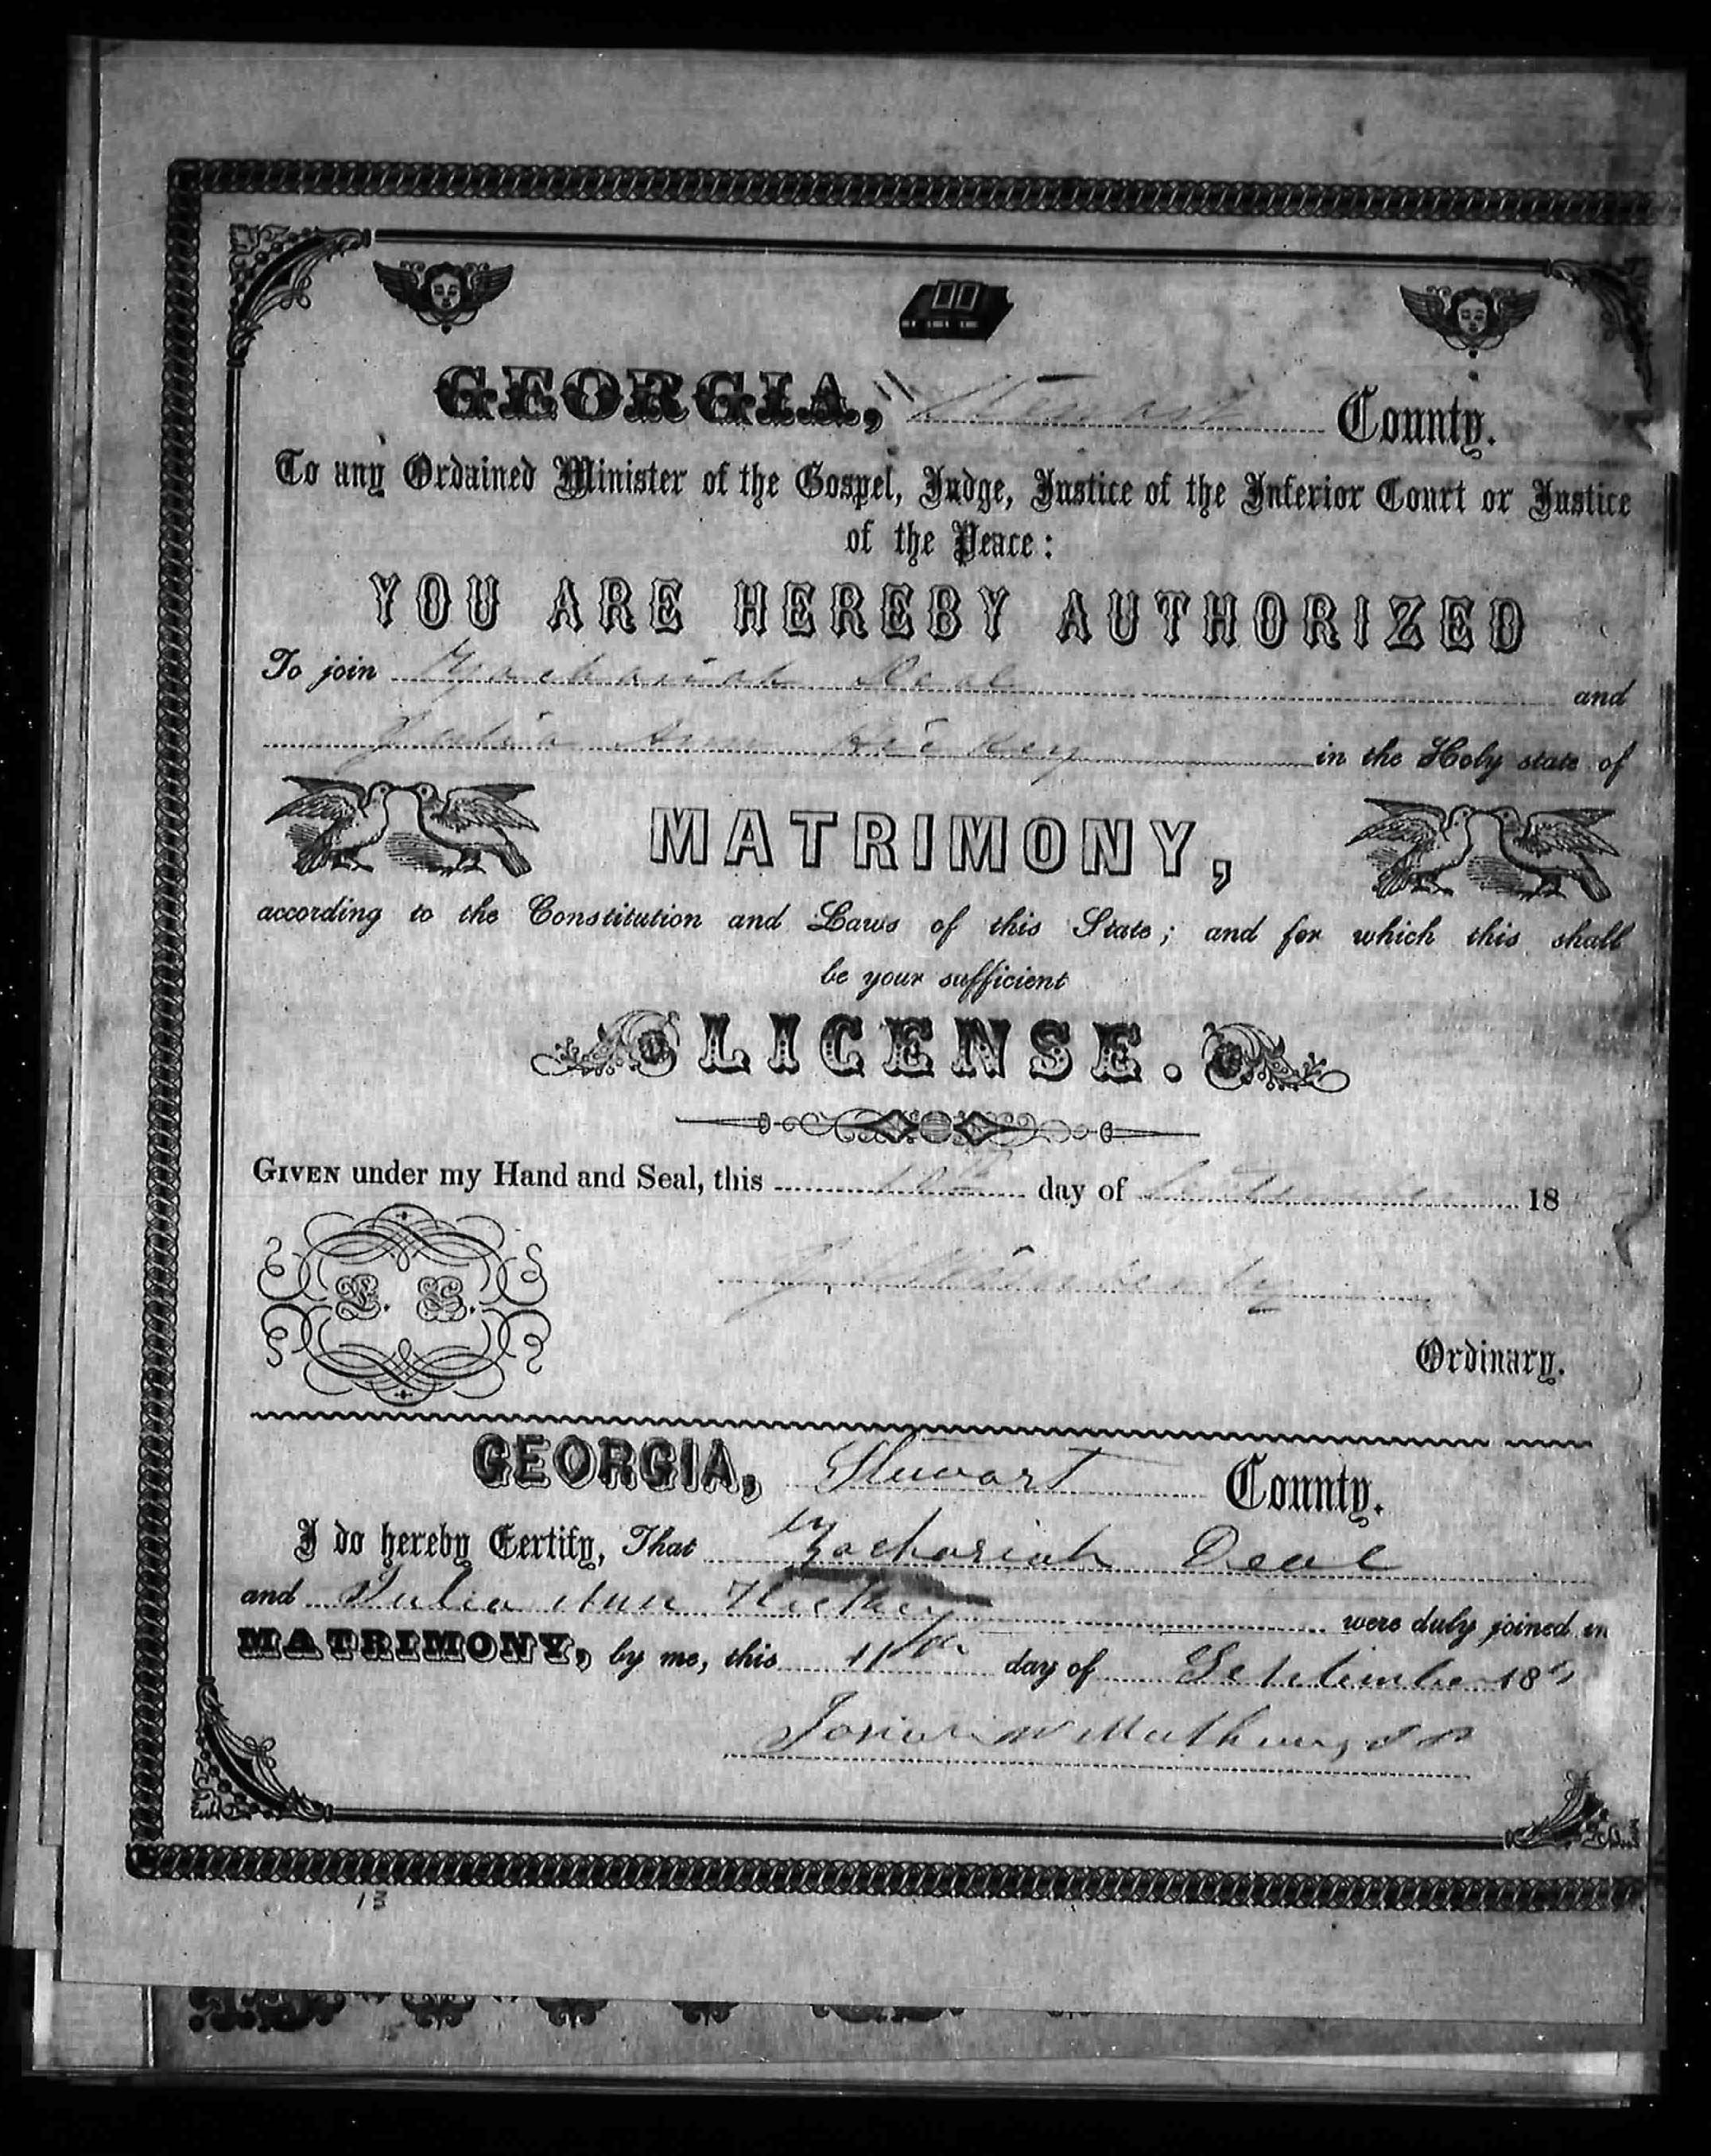 GEORGIA, Stewart County.
To any Ordained Minister of the Gospel, Judge, Justice of the Inferior Court or Justice
of the Peace:
YOU ARE HEREBY AUTHORIZED
To join Zachariah Deal and
Julia Ann Hickey in the Holy state of
MATRIMONY,
according to the Constitution and Laws of this State; and for which this shall
be your sufficient
LICENSE.
GIVEN under my Hand and Seal, this 10th day of September 18
L. S.
Ordinary.
GEORGIA, Stewart County.
I do hereby Certify, That Zachariah Deal
and Julia Ann Hickey were duly joined in
MATRIMONY, by me, this 11th day of September 186
13